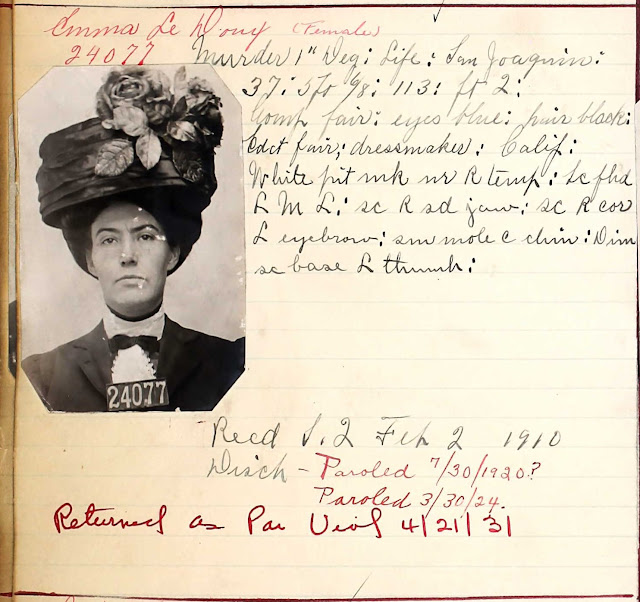 Emma Le Doux (Female)
24077 Murder 1st Deg: Life: San Joaquin:
37: 5ft 6/8: 113: ft 2:
Comp fair: eyes blue: hair black:
Edct fair; dressmaker: Calif:
White pit mk nr R temp: Sc fhd
L M L: sc R sd jaw: sc R cor
L eyebrow: sm mole C chin: Dim
sc base L thumb:
24077
Recd S.Q Feb 2 1910
Disch - Paroled 7/30/1920?
Paroled 3/30/24.
Returned as Par Viol 4/21/31